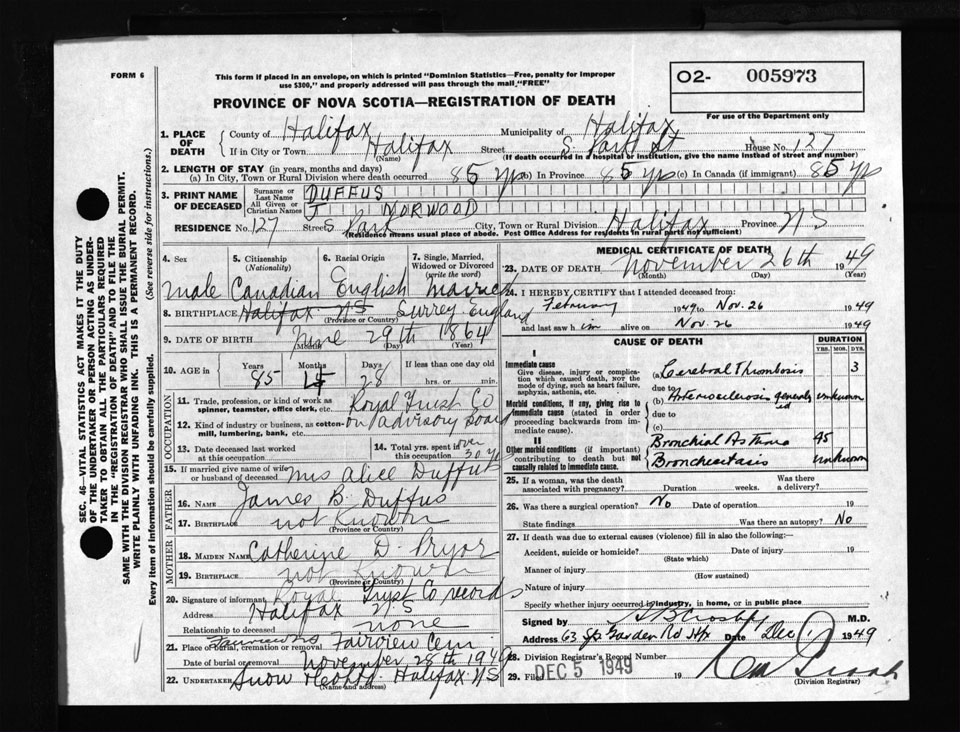 FORM 6
This form if placed in an envelope, on which is printed "Dominion Statistics—Free, penalty for improper
use $300," and properly addressed will pass through the mail "FREE"
O2- 005973
For use of the Department only
PROVINCE OF NOVA SCOTIA—REGISTRATION OF DEATH
1. PLACE OF DEATH
County of Halifax Municipality of Halifax
If in City or Town Halifax (Name) Street S. Park St House No. 127
(If death occurred in a hospital or institution, give the name instead of street and number)
2. LENGTH OF STAY (in years, months and days)
(a) In City, Town or Rural Division where death occurred 85 yrs (b) In Province 85 yrs (c) In Canada (if immigrant) 85 yrs
3. PRINT NAME OF DECEASED
Surname or Last Name DUFFUS
All Given or Christian Names J NORWOOD
RESIDENCE No. 127 Street S Park City, Town or Rural Division Halifax Province NS
(Residence means usual place of abode. Post Office Address for residents in rural parts not sufficient)
4. Sex 5. Citizenship (Nationality) 6. Racial Origin 7. Single, Married, Widowed or Divorced (write the word)
Male Canadian English Married
8. BIRTHPLACE Halifax NS Surrey England
(Province or Country)
9. DATE OF BIRTH June 29th 1864
(Month) (Day) (Year)
10. AGE in Years Months Days If less than one day old
85 4 28 hrs. or min.
OCCUPATION
11. Trade, profession, or kind of work as spinner, teamster, office clerk, etc. Royal Trust Co
12. Kind of industry or business, as cotton-mill, lumbering, bank, etc. on advisory board
13. Date deceased last worked at this occupation
14. Total yrs. spent in this occupation over 30 yrs
15. If married give name of wife or husband of deceased Mrs Alice Duffus
FATHER
16. NAME James B. Duffus
17. BIRTHPLACE not Known
(Province or Country)
MOTHER
18. MAIDEN NAME Catherine D. Pryor
19. BIRTHPLACE not Known
(Province or Country)
20. Signature of informant Royal Trust Co records
Address Halifax N.S
Relationship to deceased none
21. Place of burial, cremation or removal Fairview Cem
Date of burial or removal November 28th 1949
22. UNDERTAKER Snow Halifax NS
(Name and address)
MEDICAL CERTIFICATE OF DEATH
23. DATE OF DEATH November 26th 1949
(Month) (Day) (Year)
24. I HEREBY CERTIFY that I attended deceased from:
February 1949 to Nov. 26 1949
and last saw him alive on Nov. 26 1949
CAUSE OF DEATH DURATION
YRS. MOS. DYS.
I
Immediate cause
Give disease, injury or complication which caused death, NOT the mode of dying, such as heart failure, asphyxia, asthenia, etc.
(a) Cerebral Thrombosis 3
due to
Morbid conditions, if any, giving rise to immediate cause (stated in order proceeding backwards from immediate cause).
(b) Arteriosclerosis generalized unknown
due to
(c)
II
Other morbid conditions (if important) contributing to death but not causally related to immediate cause.
Bronchial Asthma 45
Bronchiectasis unknown
25. If a woman, was the death associated with pregnancy? Duration weeks. Was there a delivery?
26. Was there a surgical operation? No Date of operation 19
State findings Was there an autopsy? No
27. If death was due to external causes (violence) fill in also the following:—
Accident, suicide or homicide? Date of injury 19
(State which)
Manner of injury
(How sustained)
Nature of injury
Specify whether injury occurred in industry, in home, or in public place
Signed by Crosby M.D.
Address 63 Spg Garden Rd Hfx Date Dec 1 1949
28. Division Registrar's Record Number
29. Filed DEC 5 1949 19
(Division Registrar)
SEC. 46—VITAL STATISTICS ACT MAKES IT THE DUTY
OF THE UNDERTAKER OR PERSON ACTING AS UNDERTAKER
TO OBTAIN ALL THE PARTICULARS REQUIRED
IN THE "REGISTRATION OF DEATH" AND TO FILE THE
SAME WITH THE DIVISION REGISTRAR WHO SHALL ISSUE THE BURIAL PERMIT.
WRITE PLAINLY WITH UNFADING INK. THIS IS A PERMANENT RECORD.
Every item of information should be carefully supplied. (See reverse side for instructions.)